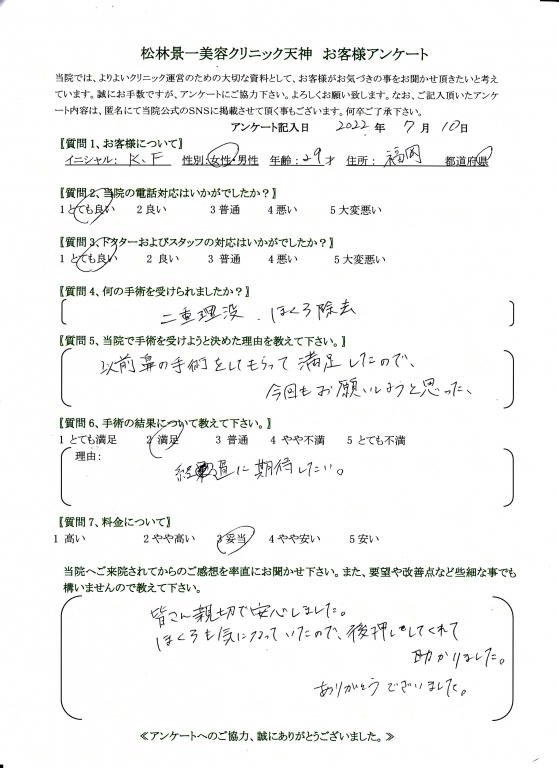 松林景一美容クリニック天神 お客様アンケート
当院では、よりよいクリニック運営のための大切な資料として、お客様がお気づきの事をお聞かせ頂きたいと考え
ています。誠にお手数ですが、アンケートにご協力下さい。よろしくお願い致します。なお、ご記入頂いたアンケ
ート内容は、匿名にて当院公式のSNSに掲載させて頂く事もございます。何卒ご了承下さい。
アンケート記入日 2022 年 7 月 10 日
【質問1、お客様について】
イニシャル: K.F 性別:女性・男性 年齢:29才 住所: 福岡 都道府県
【質問2、当院の電話対応はいかがでしたか？】
1 とても良い 2 良い 3 普通 4 悪い 5 大変悪い
【質問3、ドクターおよびスタッフの対応はいかがでしたか？】
1 とても良い 2 良い 3 普通 4 悪い 5 大変悪い
【質問4、何の手術を受けられましたか？】
二重埋没、ほくろ除去
【質問5、当院で手術を受けようと決めた理由を教えて下さい。】
以前鼻の手術をしてもらって満足したので、
今回もお願いしようと思った、
【質問6、手術の結果について教えて下さい。】
1 とても満足 2 満足 3 普通 4 やや不満 5 とても不満
理由:
経過に期待したい。
【質問7、料金について】
1 高い 2 やや高い 3 妥当 4 やや安い 5 安い
当院へご来院されてからのご感想を率直にお聞かせ下さい。また、要望や改善点など些細な事でも
構いませんので教えて下さい。
皆さん親切で安心しました。
ほくろも気になっていたので、後押しをしてくれて
助かりました。
ありがとうございました。
≪アンケートへのご協力、誠にありがとうございました。≫